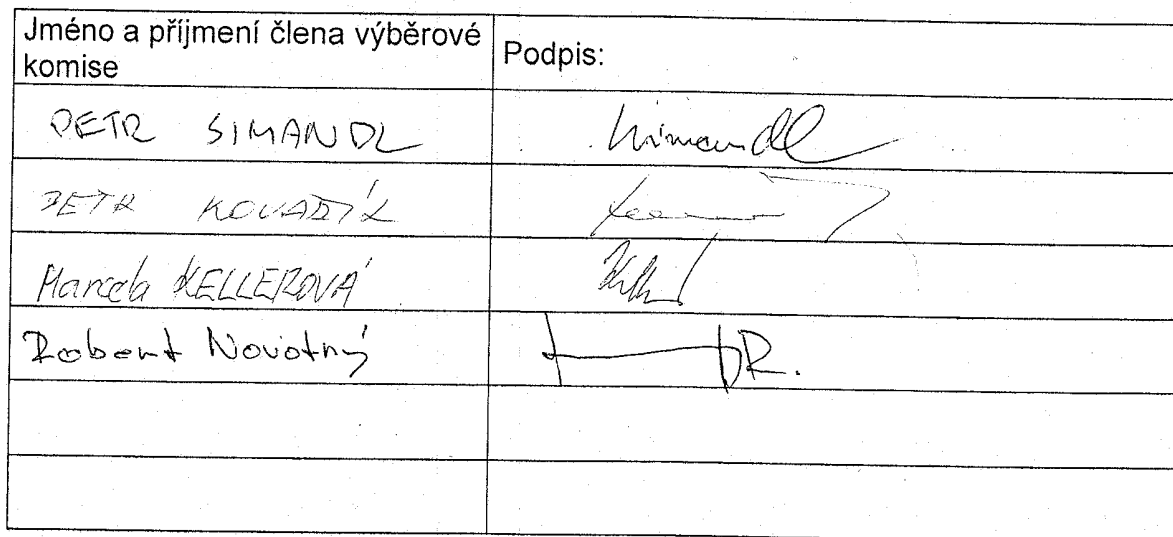 Jméno a příjmení člena výběrové
komise
Podpis:
PETR SIMANDL
Simandl
PETR KOVAŘÍK
Marcela KELLEROVÁ
Robert Novotný